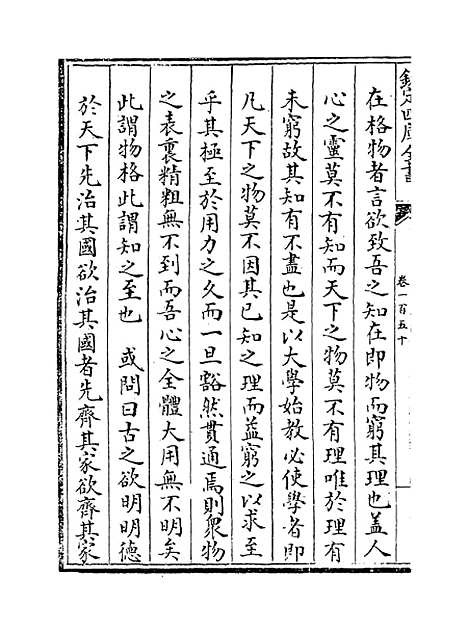 欽定四庫全書
卷一百五十
在格物者言欲致吾之知在即物而窮其理也盖人
心之靈莫不有知而天下之物莫不有理唯於理有
未窮故其知有不盡也是以大學始教必使學者即
凡天下之物莫不因其已知之理而益窮之以求至
乎其極至於用力之久而一旦豁然貫通焉則衆物
之表裏精粗無不到而吾心之全體大用無不明矣
此謂物格此謂知之至也 或問曰古之欲明明德
於天下先治其國欲治其國者先齊其家欲齊其家